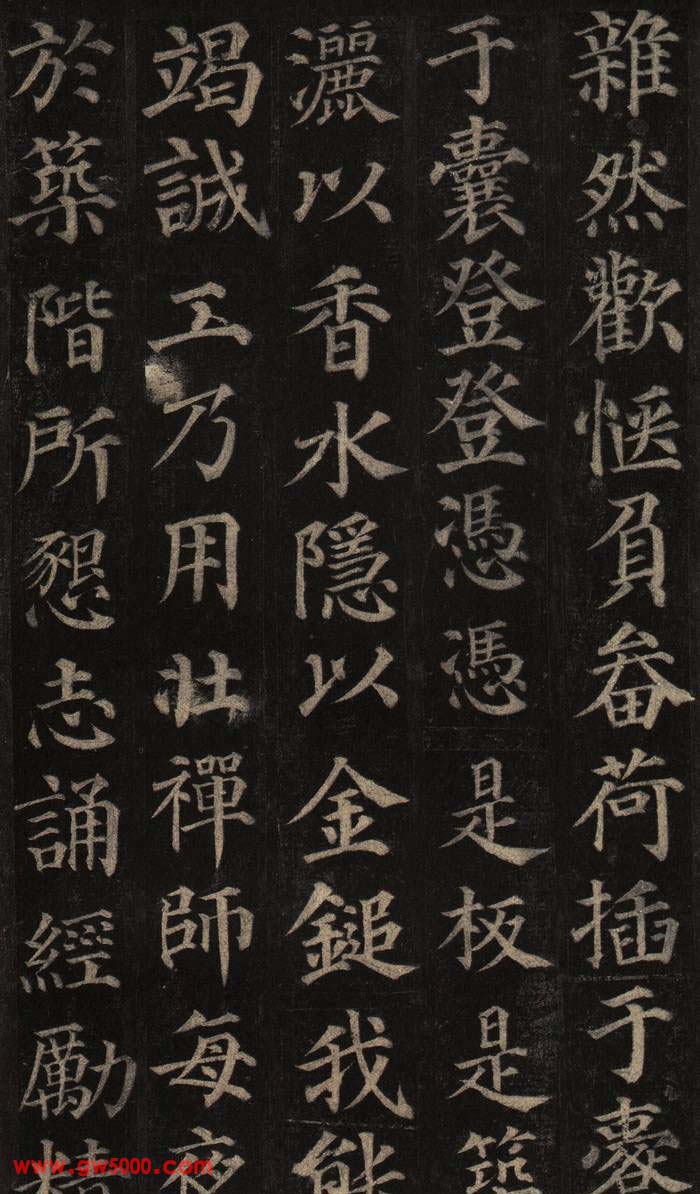 雜然歡愜負畚荷插于橐
于囊登登憑憑是板是築
灑以香水隱以金鎚我能
竭誠工乃用壯禪師每夜
於築階所懇志誦經勵精
www.gw5000.com